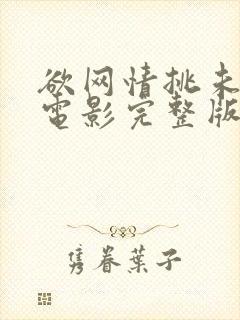 欲网情挑未
電影完整版
隽眷葉子